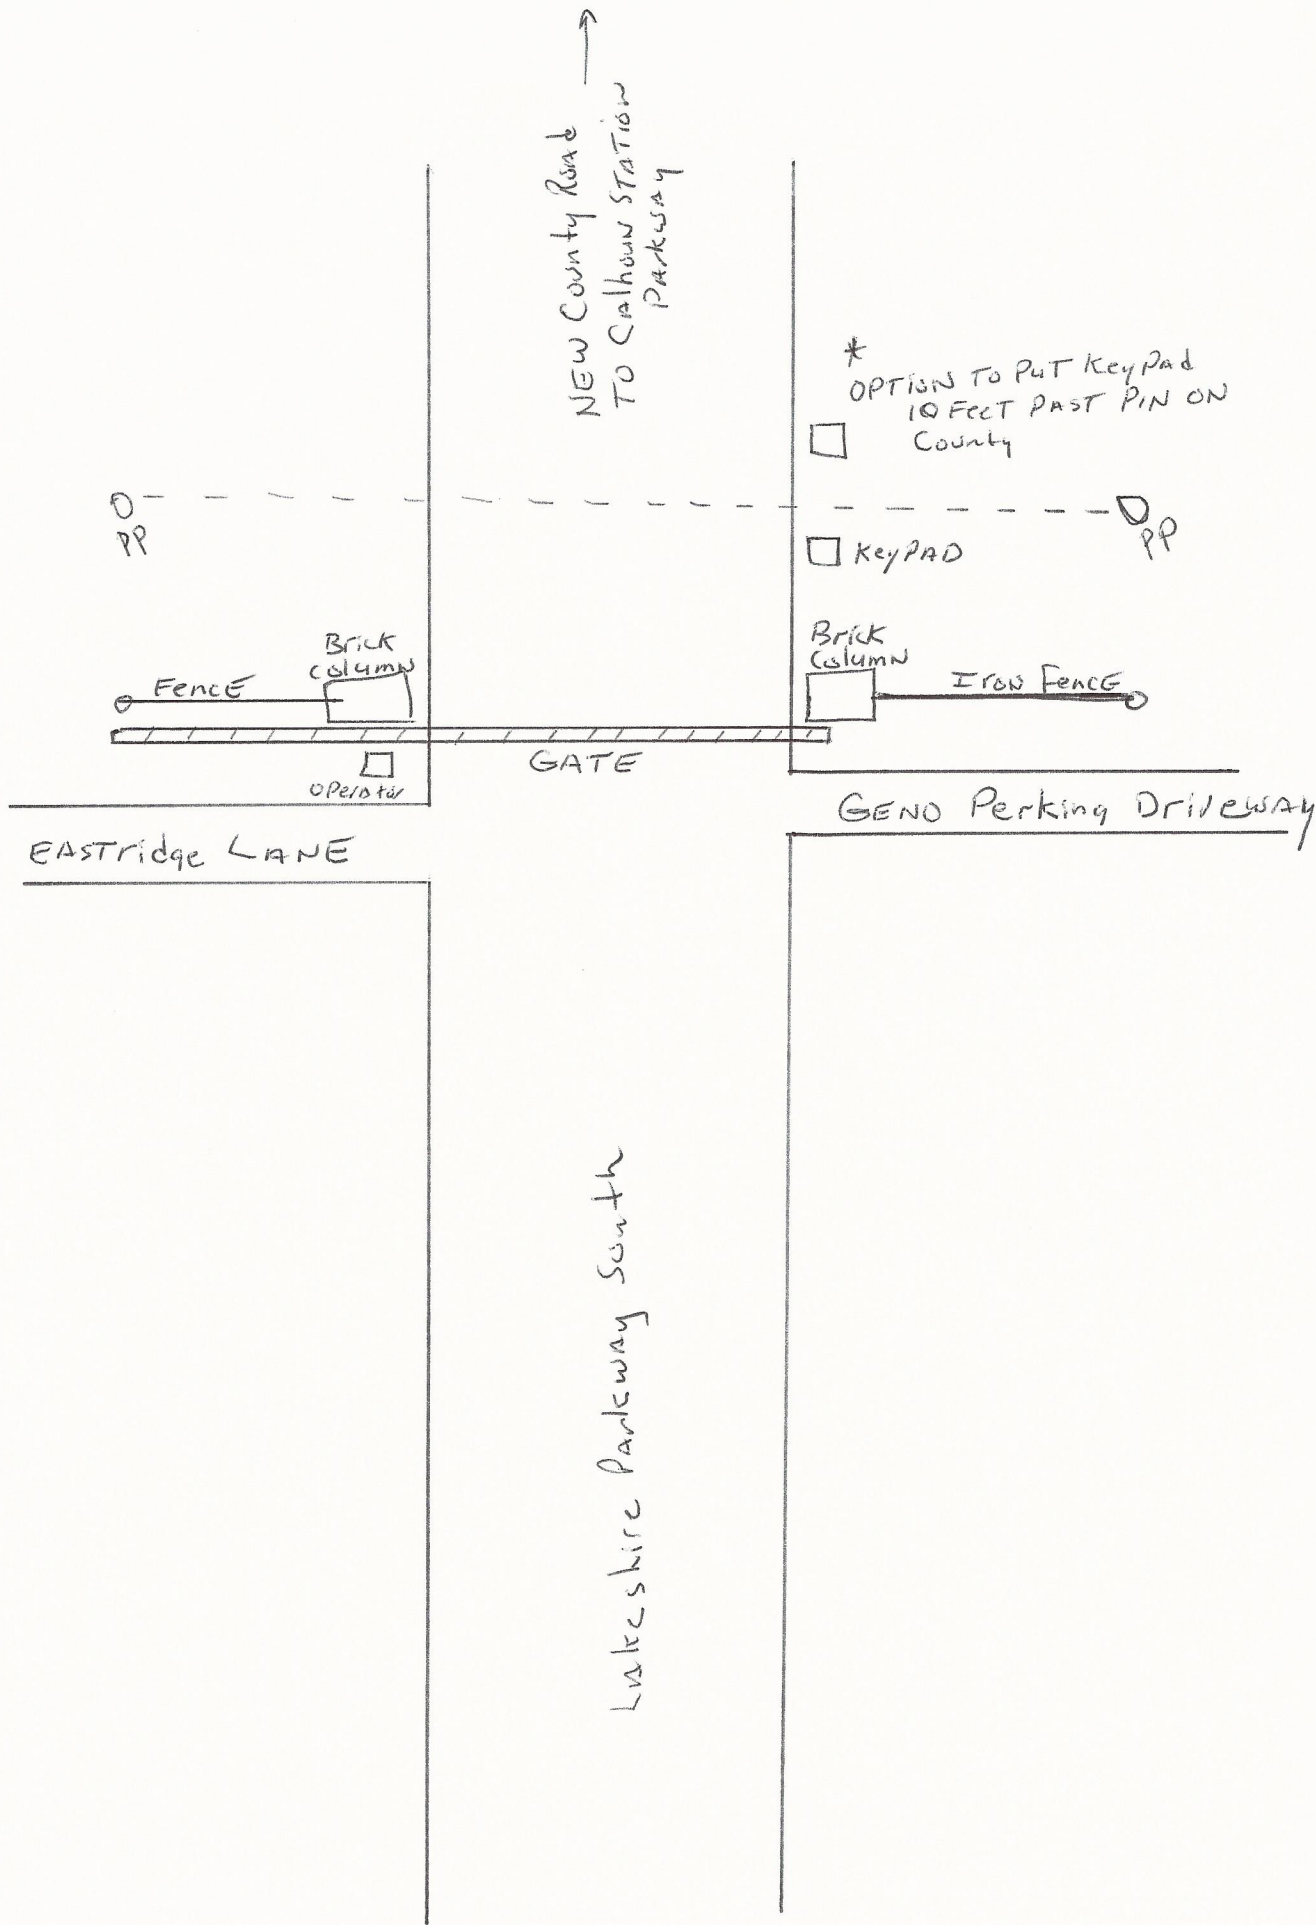 NEW County Road
TO Calhoun STATION
Parkway
*
OPTION TO PUT KeyPad
10 FeeT PAST PIN ON
County
PP
PP
KeyPAD
Brick
column
Brick
Column
FencE
Iron FencE
GATE
operator
GENO Perking Driveway
EASTridge LANE
Lakeshire Parkway South